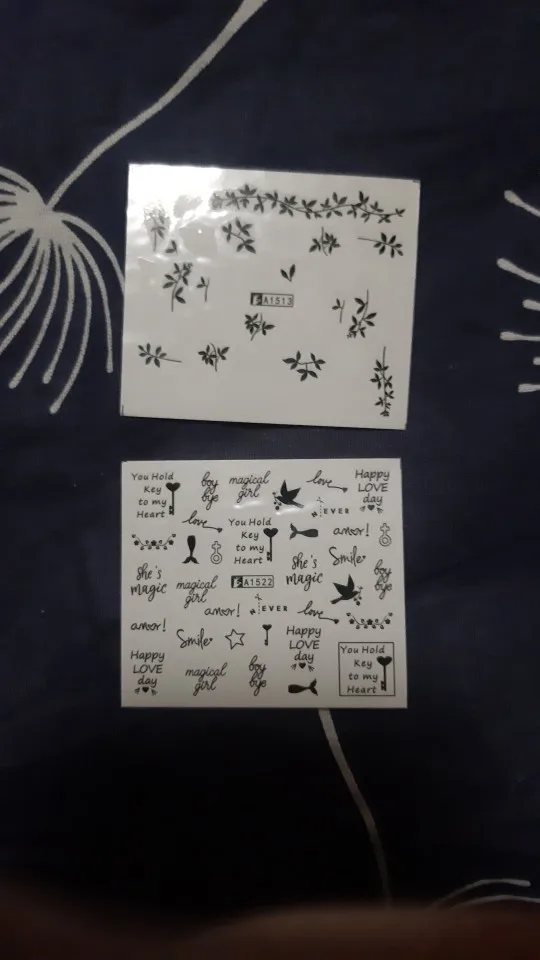 A1513
You Hold
Key
to my
Heart
boy
bye
magical
girl
love
Happy
LOVE
day
EVER
love
You Hold
Key
to my
Heart
amor!
she's
magic
she's
magic
Smile
boy
bye
magical
girl
A1522
amor!
EVER
love
amor!
Smile
Happy
LOVE
day
Happy
LOVE
day
magical
girl
boy
bye
You Hold
Key
to my
Heart